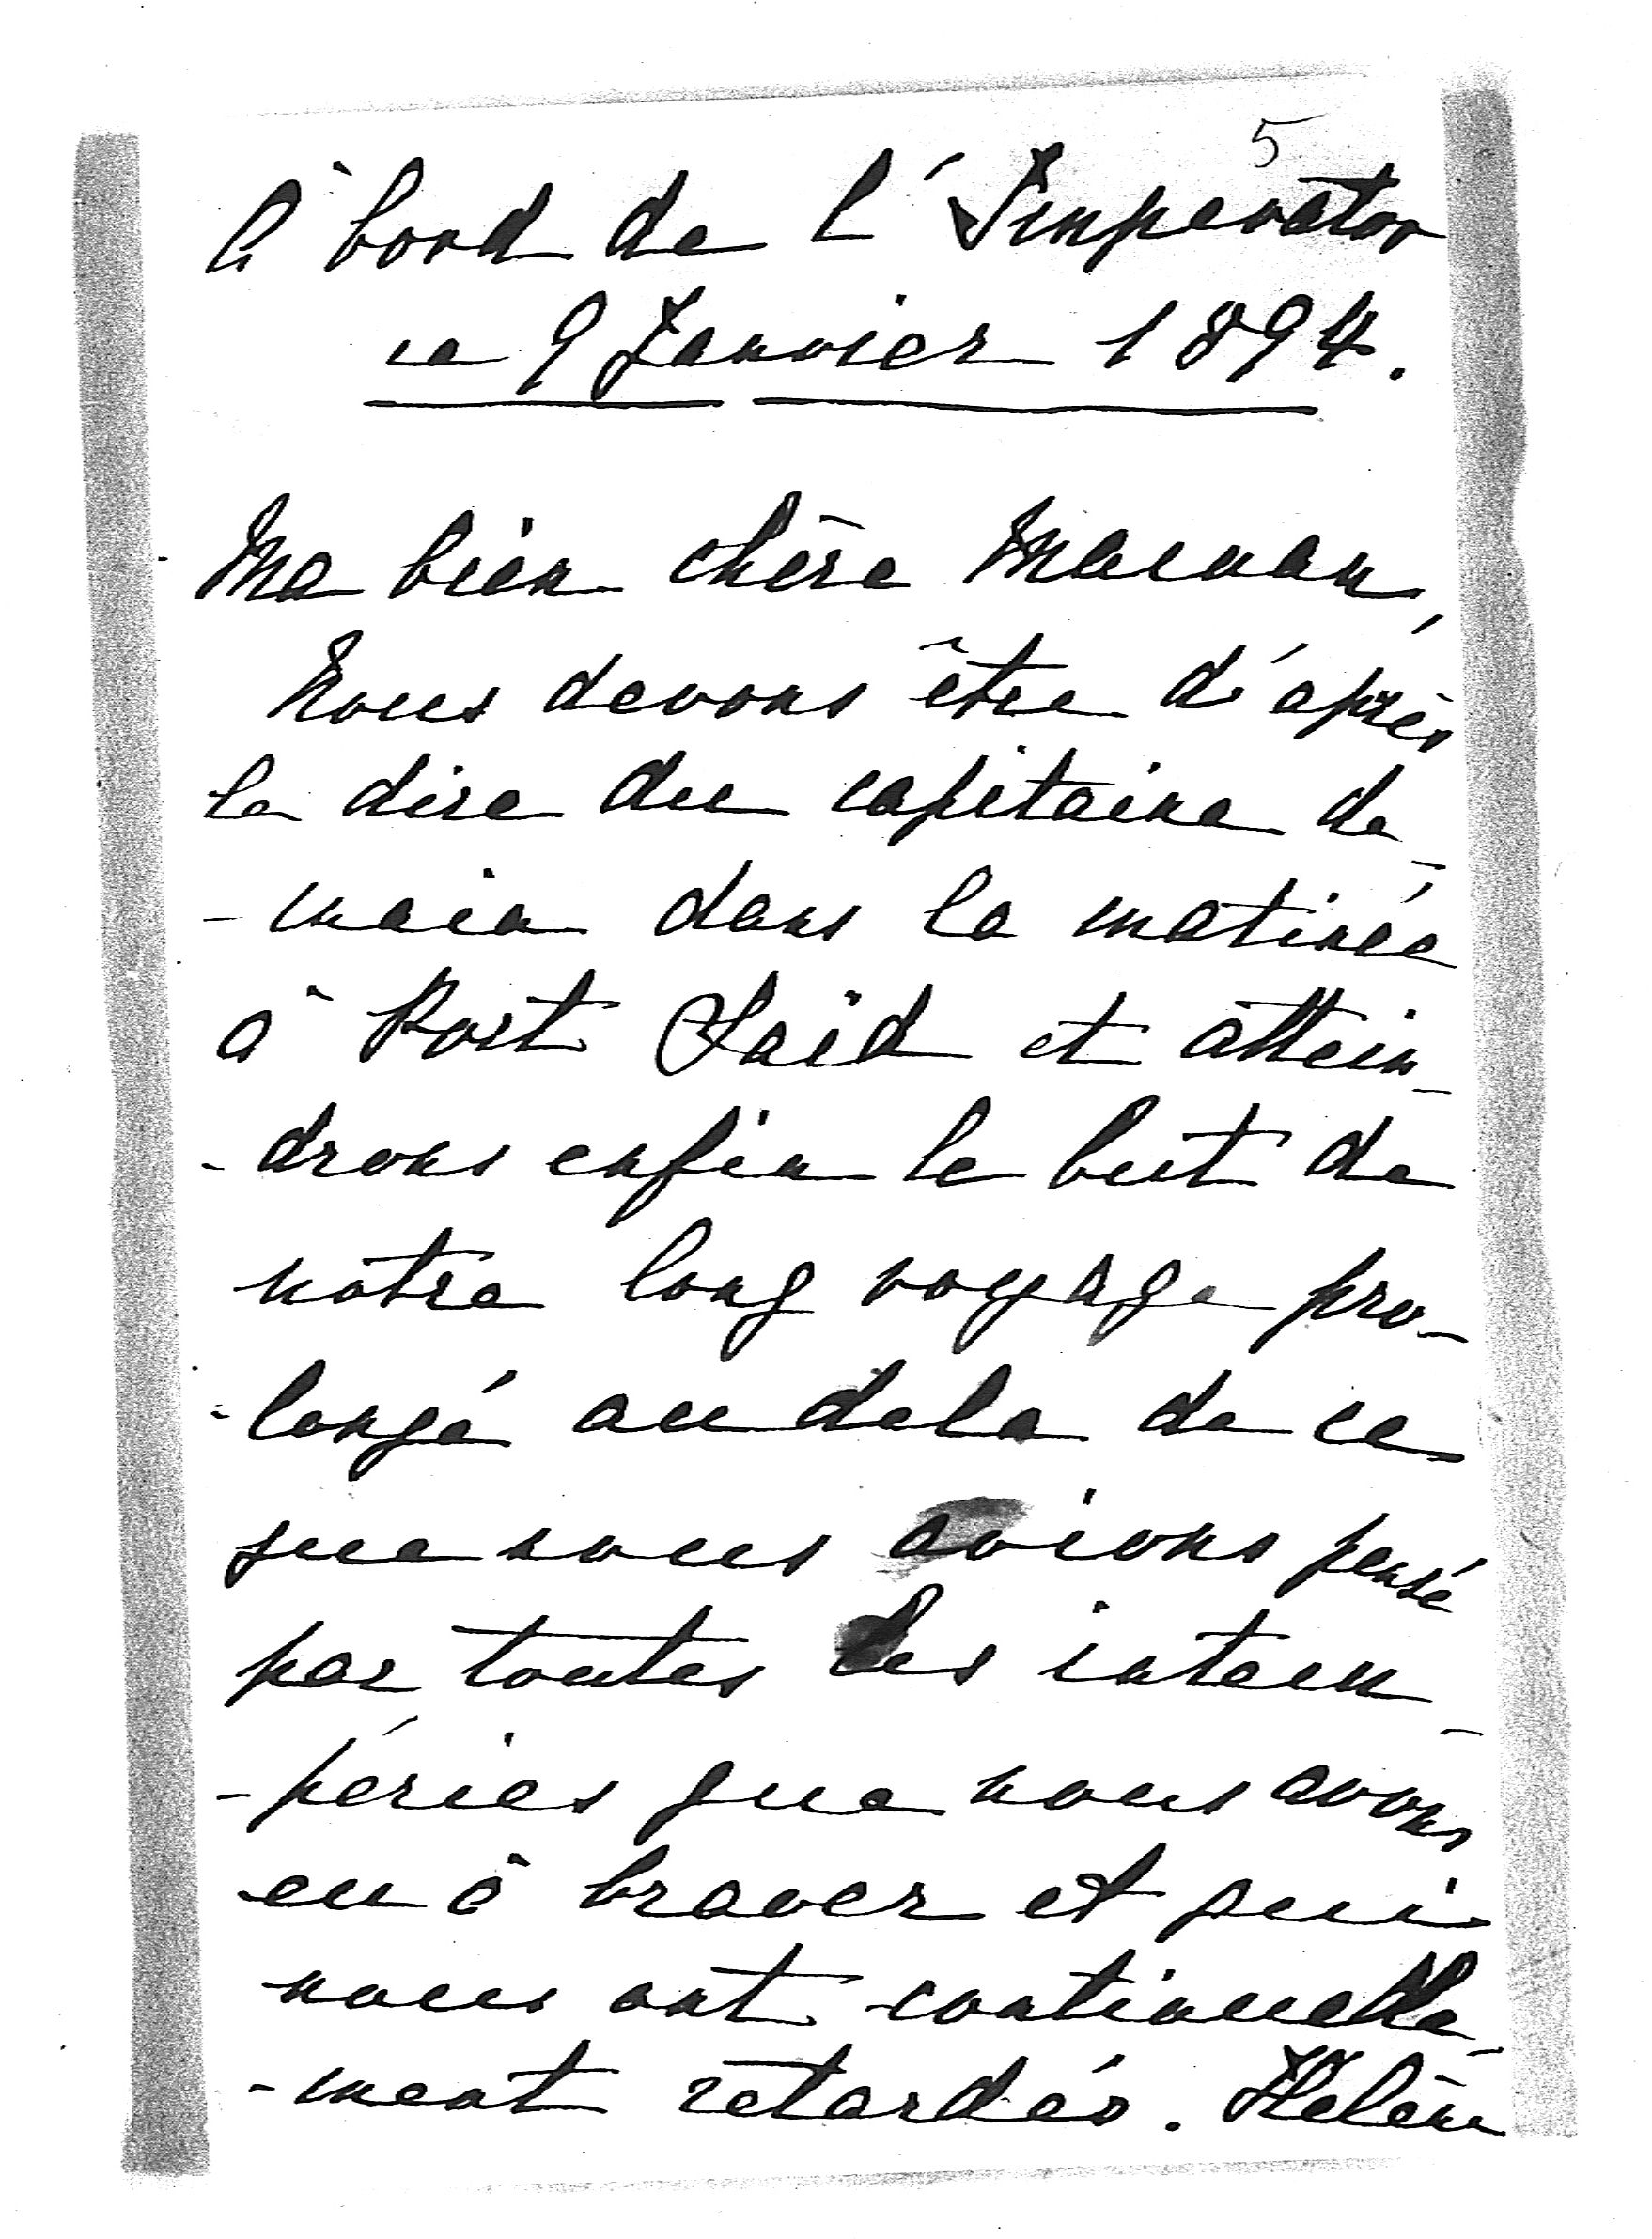 5
A bord de l'Imperator
ce 9 Janvier 1894.
Ma bien chère Maman,
Nous devons être d'après
le dire du capitaine de-
-main dans la matinée
à Port Saïd et attein-
-drons enfin le but de
notre long voyage pro-
-longé au dela de ce
que nous avions pensé
par toutes les intem-
-péries que nous avons
eu à braver et qui
nous ont continuelle-
-ment retardés. Helène